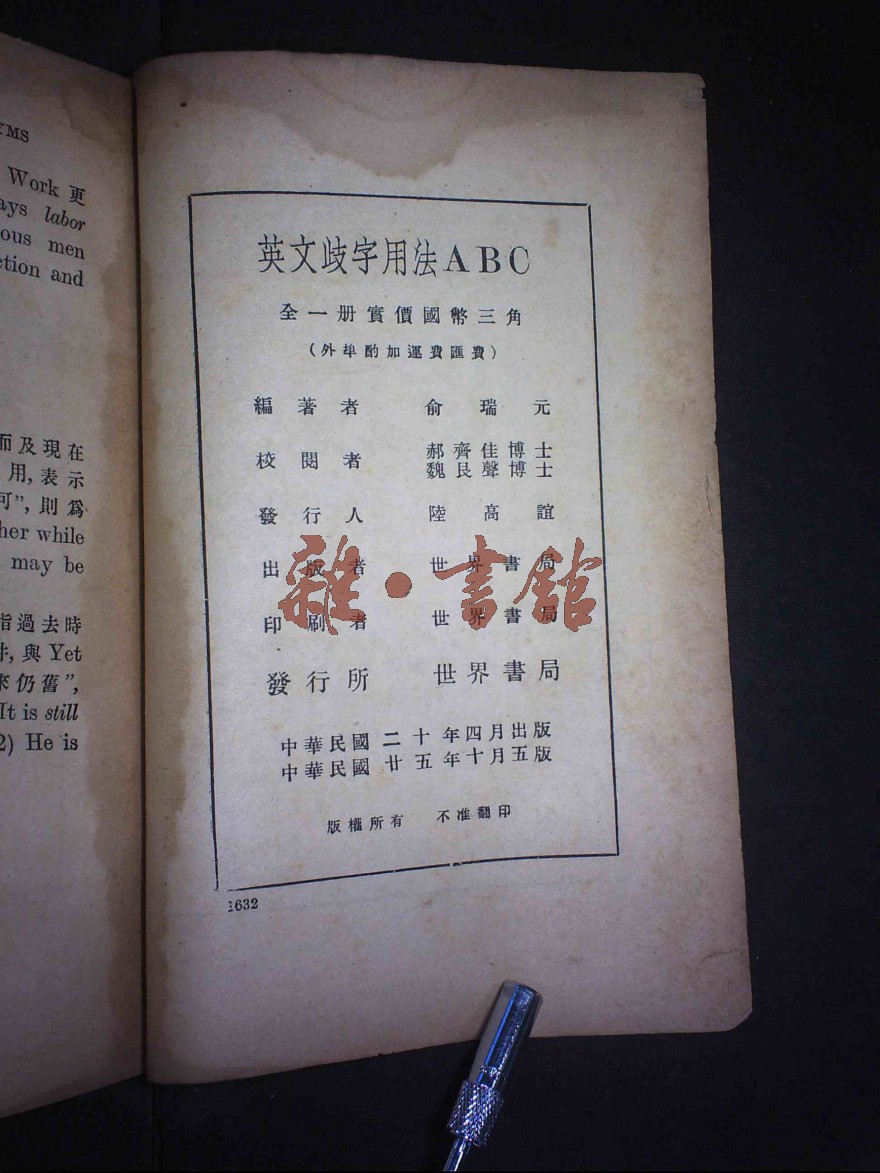 YMS
Work 更
ays labor
ous men
ction and
而及現在
用,表示
可”, 則爲
her while
may be
指過去時
件, 與 Yet
來仍舊”,
It is still
2) He is
英文歧字用法ABC
全一册實價國幣三角
(外埠酌加運費匯費)
編著者 俞瑞元
校閱者 郝齊佳博士
魏艮聲博士
發行人 陸高誼
出版者 世界書局
印刷者 世界書局
發行所 世界書局
中華民國二十年四月出版
中華民國廿五年十月五版
版權所有 不准翻印
1632
雜·書館